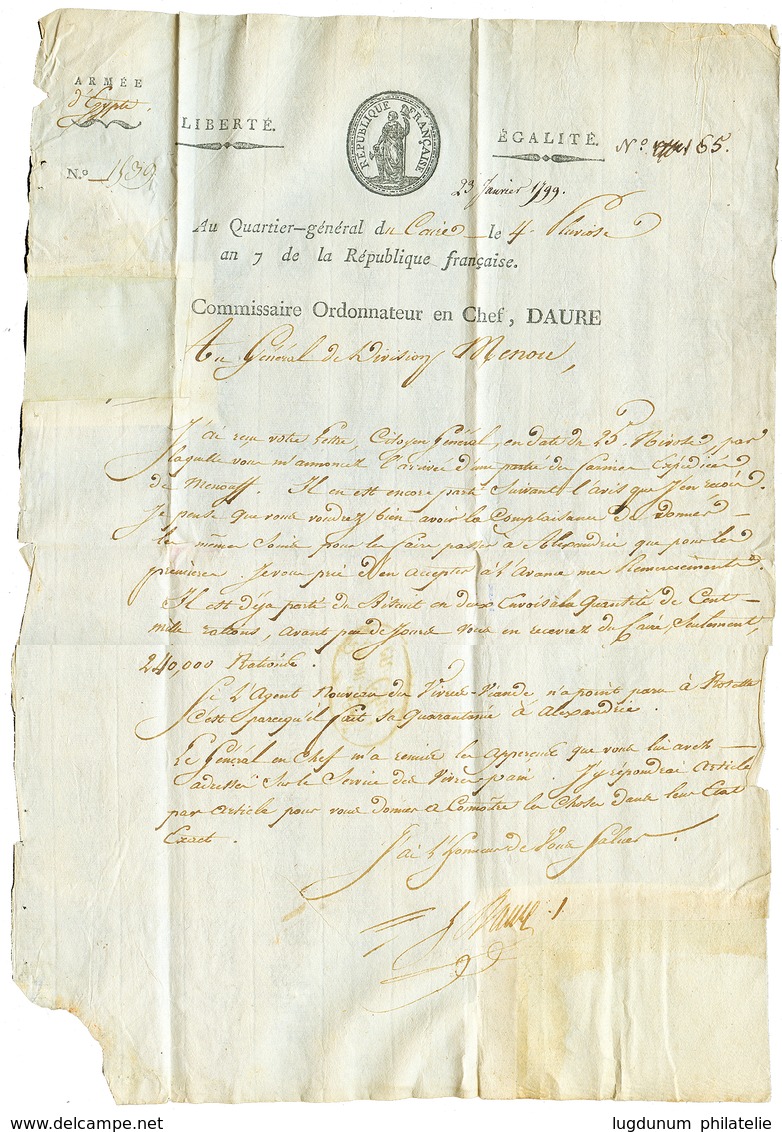 ARMÉE
d'Egypte.
LIBERTÉ.
RÉPUBLIQUE FRANÇAISE
ÉGALITÉ.
N.º 165.
N.º 1539
23 Janvier 1799.
Au Quartier-général du Caire le 4 Pluviose
an 7 de la République française.
Commissaire Ordonnateur en Chef, DAURE
Au Général de Division Menou,
J'ai reçu votre Lettre, Citoyen Général, en date du 25 Nivose, par
laquelle vous m'annoncez l'arrivée d'une partie du
de Menouff. Il en est encore parti suivant l'avis que j'en reçois.
Je pense que vous voudrez bien avoir la Complaisance de donner
les mêmes Soins pour les faire passer à Alexandrie que pour les
premiers. Je vous prie d'en accepter à l'avance mes Remerciements.
Il est déja parti du Biscuit en deux Envois la Quantité de Cent
mille rations, avant peu de Jours vous en recevrez du Caire, Seulement,
240,000 Rations.
Si l'Agent nouveau des Vivres-Viande n'a point paru à Rosette
c'est parcequ'il fait sa Quarantaine à Alexandrie.
Le Général en Chef m'a remis les que vous lui avez
adressés sur le Service des Vivres pain. J'y répondrai Article
par Article pour vous donner a Connoître les Choses dans leur Etat
Exact.
J'ai l'honneur de Vous Saluer.
Daure
lugdunum philatelie